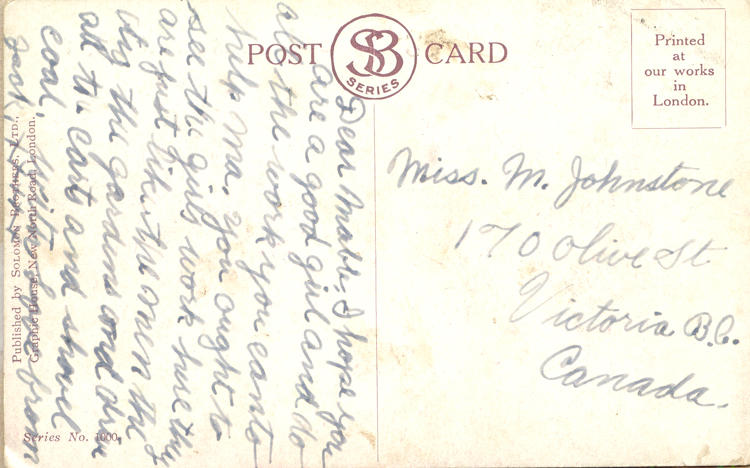 POST CARD
SB
SERIES
Printed
at
our works
in
London.
Dear Mabb, I hope you
are a good girl and do
all the work you can to
help Ma. you ought to
see the girls work here they
are just like the men the
dig the gardens and drive
all the carts and shovel
coal, from
Jack,
Miss. M. Johnstone
170 Olive St
Victoria B.C.
Canada.
Published by SOLOMON BROTHERS, LTD.,
Graphic House, New North Road, London.
Series No. 1000.